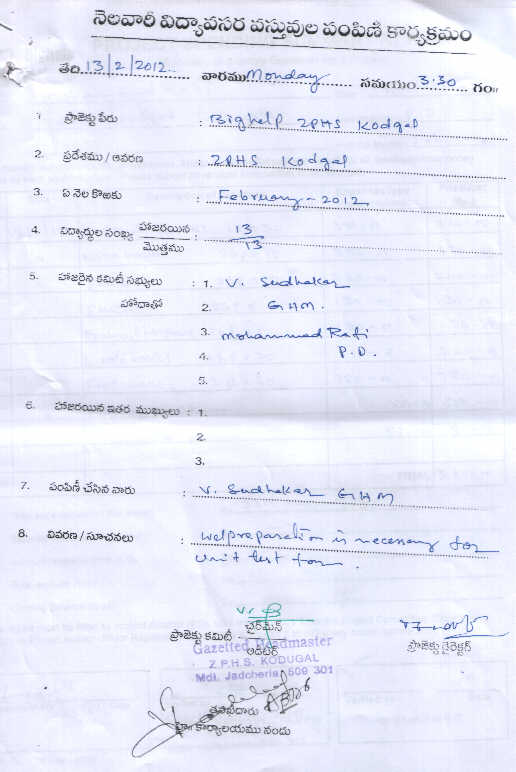 నెలవారీ విద్యావసర వస్తువుల పంపిణి కార్యక్రమం
తేది 13/2/2012 వారము Monday సమయం 3.30 గం॥
1 ప్రాజెక్టు పేరు : Bighelp ZPHS Kodgal
2. ప్రదేశము / ఆవరణ : ZPHS Kodgal
3. ఏ నెల కొఱకు : February - 2012
4. విద్యార్థుల సంఖ్య హాజరయిన : 13
మొత్తము 13
5. హాజరైన కమిటీ సభ్యులు : 1. V. Sudhakar
హోదాతో 2. GHM.
3. Mohammad Rafi
4. P.D.
5.
6. హాజరయిన ఇతర ముఖ్యులు : 1.
2.
3.
7. పంపిణీ చేసిన వారు : V. Sudhakar GHM
8. వివరణ / సూచనలు : welpreparation is necessary for
unit test for .
చైర్‌మెన్
ప్రాజెక్టు కమిటీ - ఆడిటర్ ప్రాజెక్టు డైరెక్టర్
Gazetted Headmaster
Z.P.H.S. KODUGAL
Mdl. Jadcherla, 509 301
తహశీల్దారు
కార్యాలయము నందు